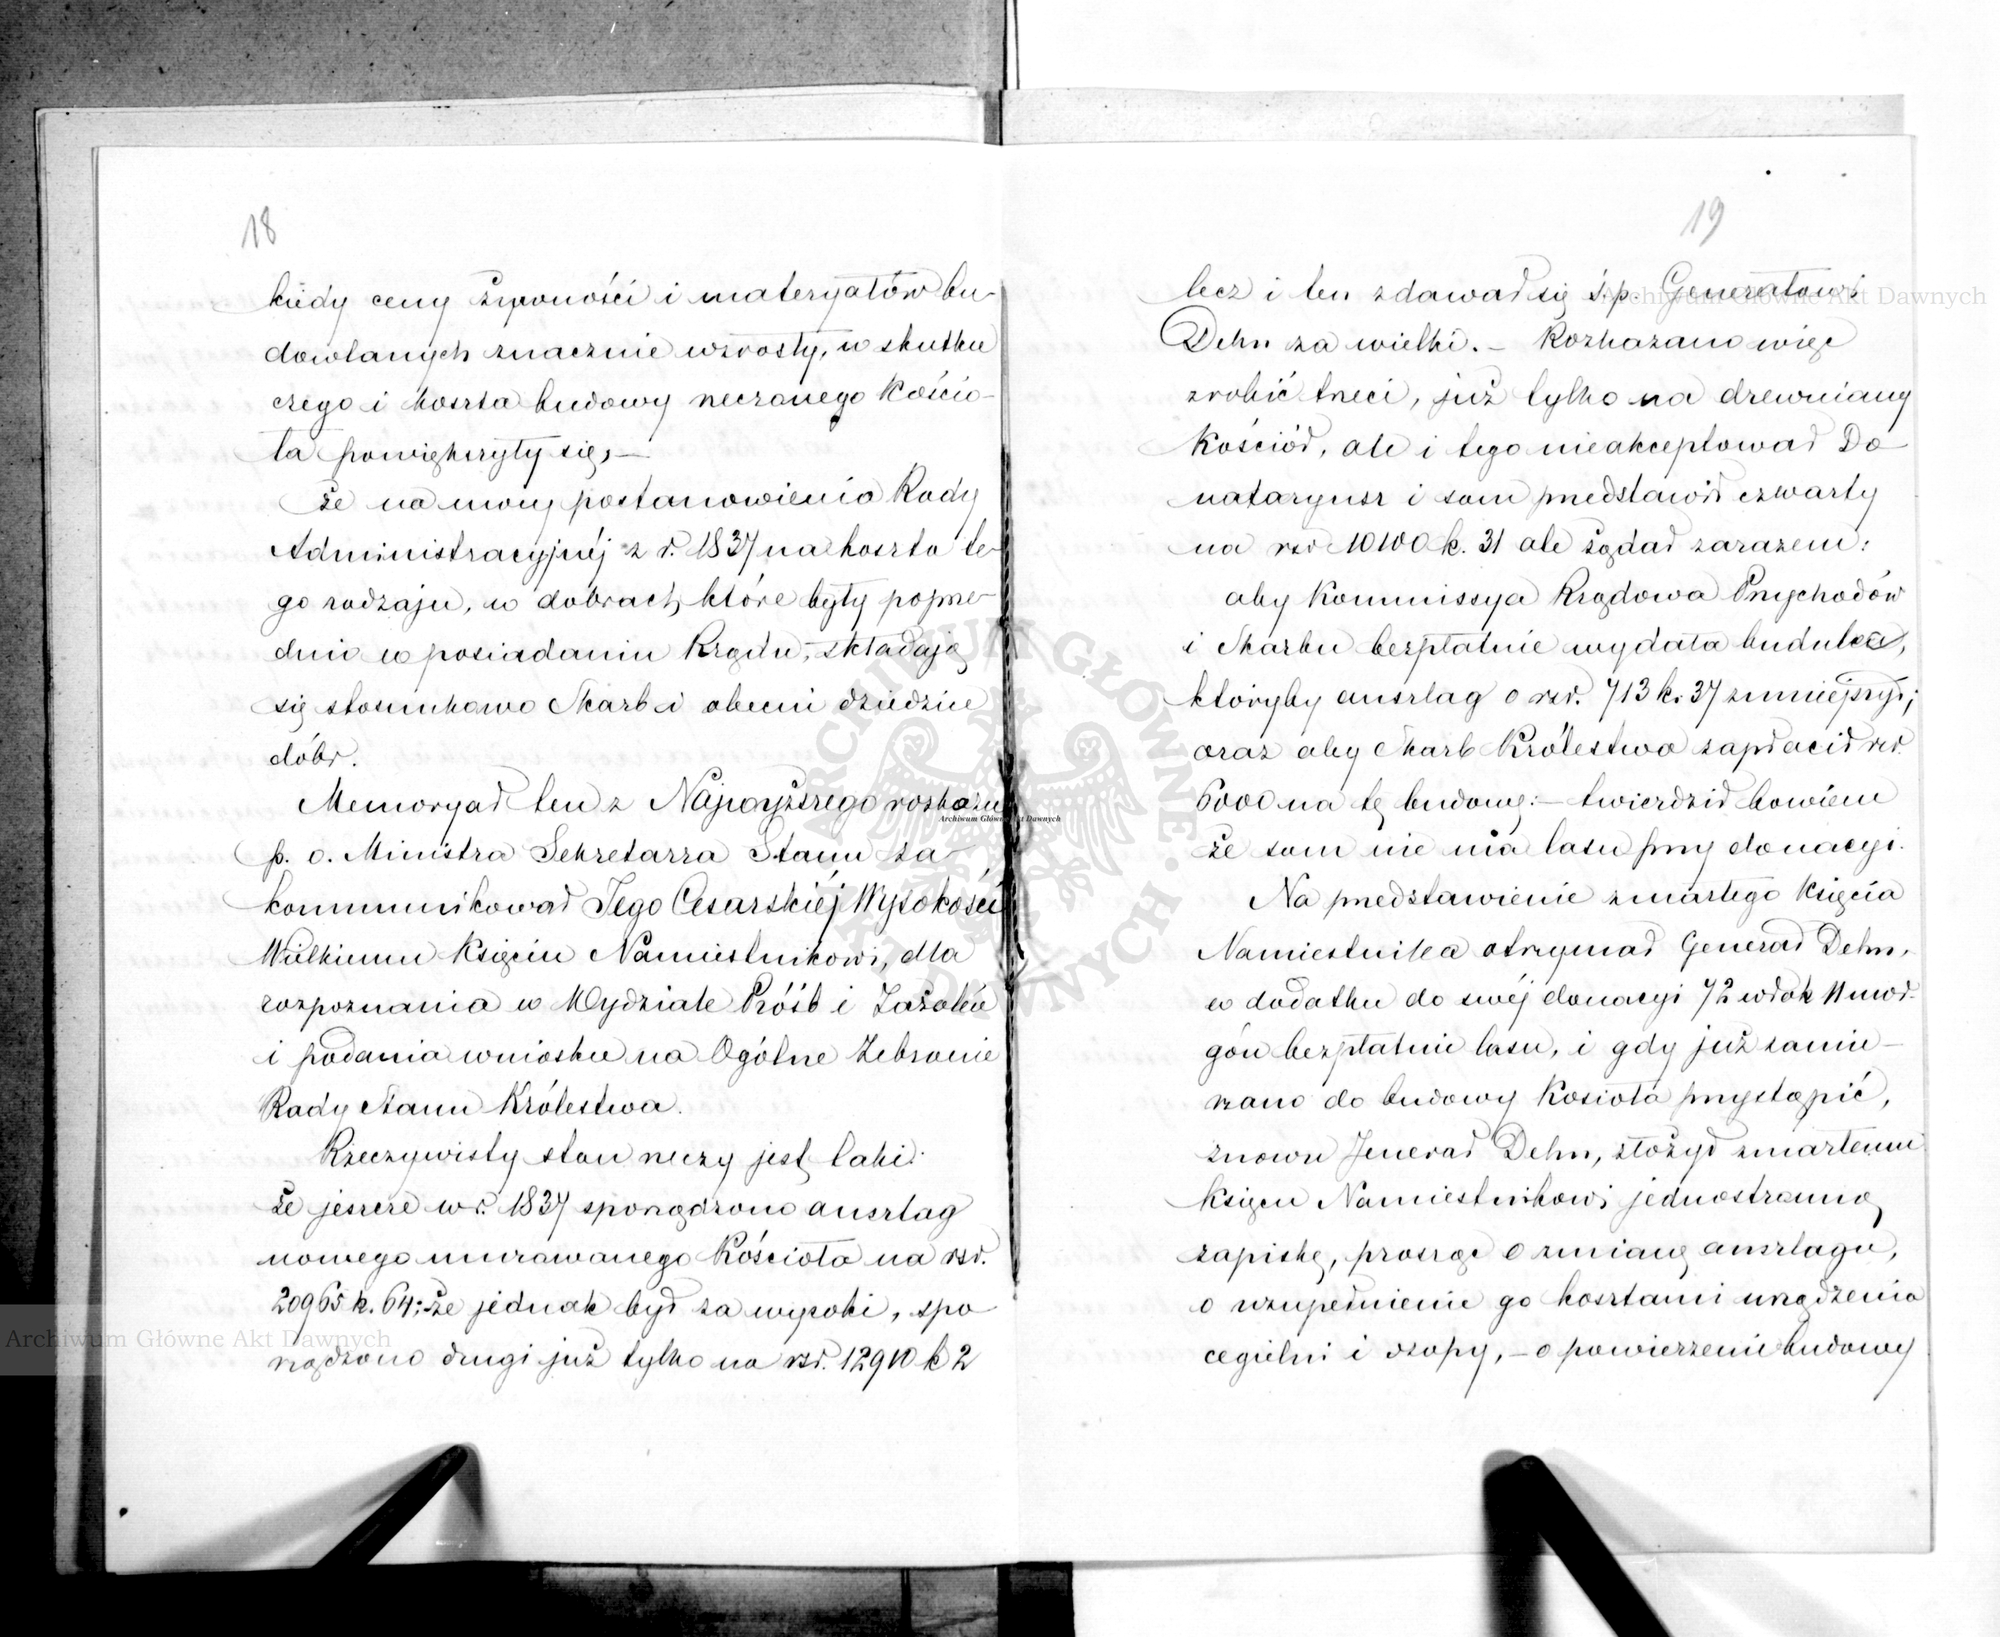 18
kiedy ceny żywności i materyałów bu-
dowlanych znacznie wzrosły, w skutku
czego i koszta budowy rzeczonego Kościo-
ła powiększyły się,—
Że na mocy postanowienia Rady
Administracyjnéj z r. 1837 na koszta te-
go rodzaju, w dobrach, które były poprze-
dnio w posiadaniu Rządu, składają
się stosunkowo Skarb i obecni dziedzice
dóbr.
Memoryał ten z Najwyższego rozkazu
p. o. Ministra Sekretarza Stanu za-
kommunikował Jego Cesarskiéj Wysokości
Wielkiemu Księciu Namiestnikowi, dla
rozpoznania w Wydziale Próśb i Zażaleń
i podania wniosku na Ogólne Zebranie
Rady Stanu Królestwa.
Rzeczywisty stan rzeczy jest taki:
Że jeszcze w r. 1837 sporządzono anszlag
nowego murowanego Kościoła na rsr.
20965 k. 64; że jednak był za wysoki, spo
rządzono drugi już tylko na rsr. 12910 k 2
19
lecz i ten zdawał się ś.p. Generałowi
Dehn za wielki. — Rozkazano więc
zrobić trzeci, już tylko na drewniany
Kościół, ale i tego nieakceptował Do
nataryusz i sam przedstawił czwarty
na rsr 10100 k. 31 ale żądał zarazem:
aby Kommissya Rządowa Przychodów
i Skarbu bezpłatnie wydała budulca,
któryby anszlag o rsr. 713 k. 37 zmniejszył;
oraz aby Skarb Królestwa zapłacił rsr.
6000 na tę budowę: — twierdził bowiem
że sam nie ma lasu przy donacyi.
Na przedstawienie zmarłego Księcia
Namiestnika otrzymał Generał Dehn,
w dodatku do swéj donacyi 72 włók 11 mor-
gów bezpłatnie lasu, i gdy już zamie-
rzano do budowy Kosioła przystąpić,
znowu Jenerał Dehn, złożył zmarłemu
Księciu Namiestnikowi jednostronną
zapiskę, prosząc o zmianę anszlagu,
o uzupełnienie go kosztami urządzenia
cegielni i szopy, — o powierzenie budowy
Archiwum Główne Akt Dawnych
Archiwum Główne Akt Dawnych
Archiwum Główne Akt Dawnych
ARCHIWUM GŁÓWNE AKT DAWNYCH